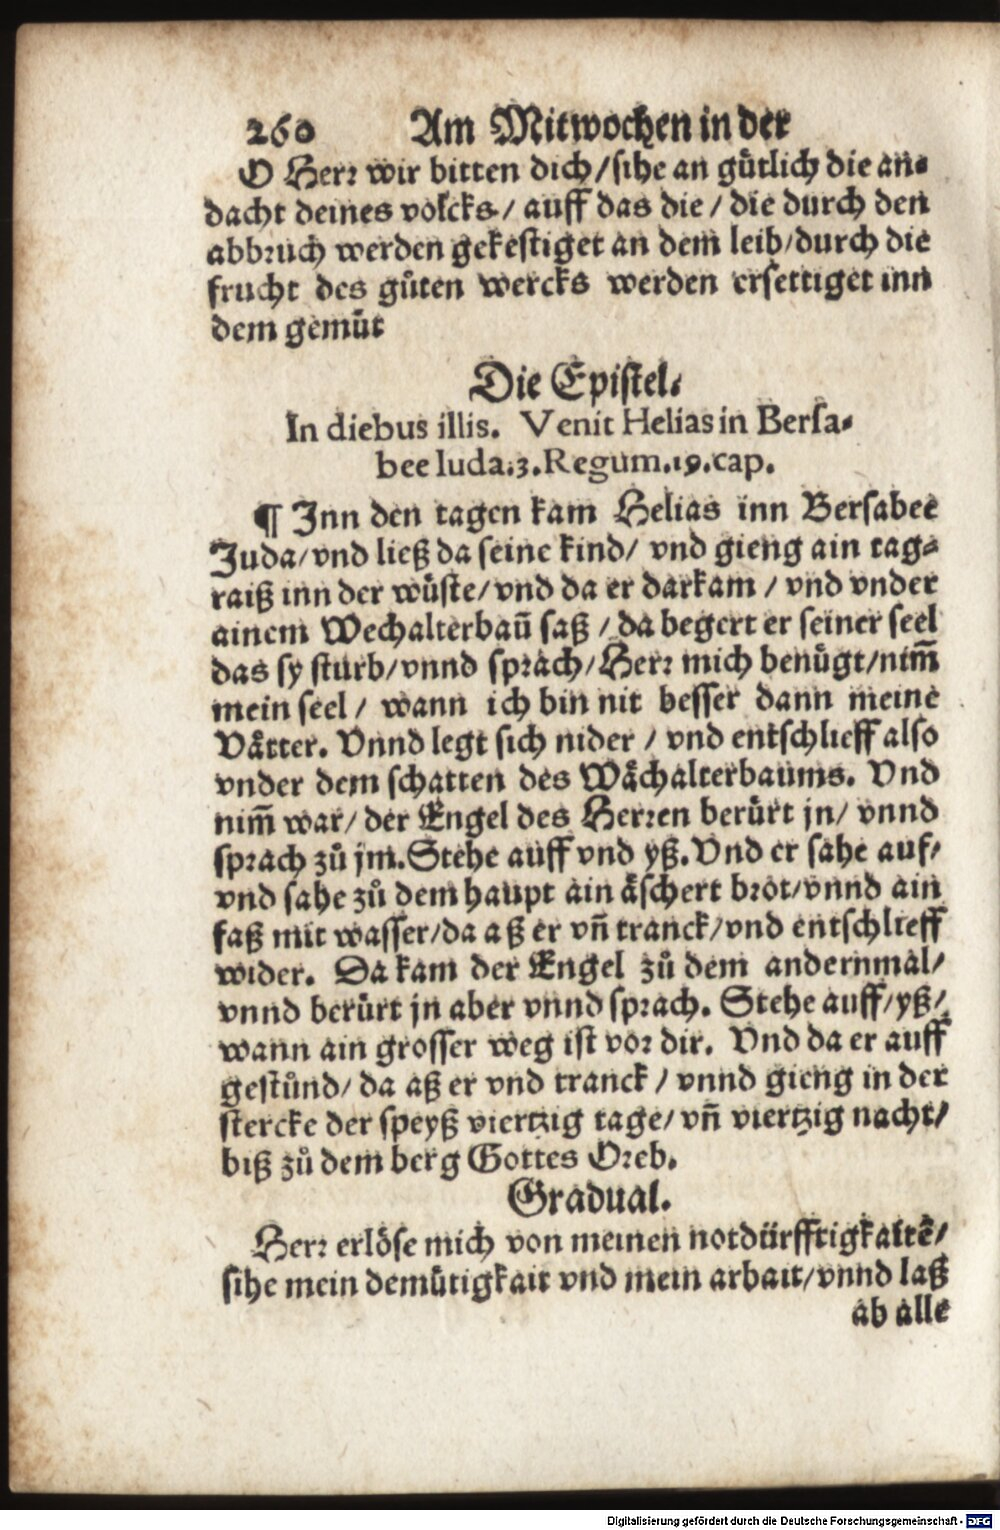 260 Am Mitwochen in der
O Herr wir bitten dich/sihe an guͤtlich die an⸗
dacht deines volcks/ auff das die/ die durch den
abbruch werden gekestiget an dem leib/durch die
frucht des guͤten wercks werden ersettiget inn
dem gemuͤt
Die Epistel.
In diebus illis. Venit Helias in Bersa⸗
bee Iuda.3.Regum.19.cap.
¶ Inn den tagen kam Helias inn Bersabee
Juda/vnd ließ da seine kind/ vnd gieng ain tag⸗
raiß inn der wuͤste/vnd da er darkam / vnd vnder
ainem Wechalterbaū saß /da begert er seiner seel
das sy sturb/vnnd sprach/Herr mich benuͤgt/nim̄
mein seel/ wann ich bin nit besser dann meine
Vaͤtter. Vnnd legt sich nider / vnd entschlieff also
vnder dem schatten des Waͤchalterbaums. Vnd
nim̄ war/ der Engel des Herren beruͤrt jn/ vnnd
sprach zuͦ jm.Stehe auff vnd yß.Vnd er sahe auf/
vnd sahe zuͦ dem haupt ain aͤschert brot/vnnd ain
faß mit wasser/da aß er vn̄ tranck/vnd entschlieff
wider. Da kam der Engel zuͦ dem andernmal/
vnnd beruͤrt jn aber vnnd sprach. Stehe auff/yß/
wann ain grosser weg ist vor dir. Vnd da er auff
gestuͦnd/ da aß er vnd tranck / vnnd gieng in der
stercke der speyß viertzig tage/ vn̄ viertzig nacht/
biß zuͦ dem berg Gottes Oreb.
Gradual.
Herr erloͤse mich von meinen notduͤrfftigkaitē/
sihe mein demuͤtigkait vnd mein arbait/vnnd laß
ab alle
Digitalisierung gefördert durch die Deutsche Forschungsgemeinschaft - DFG